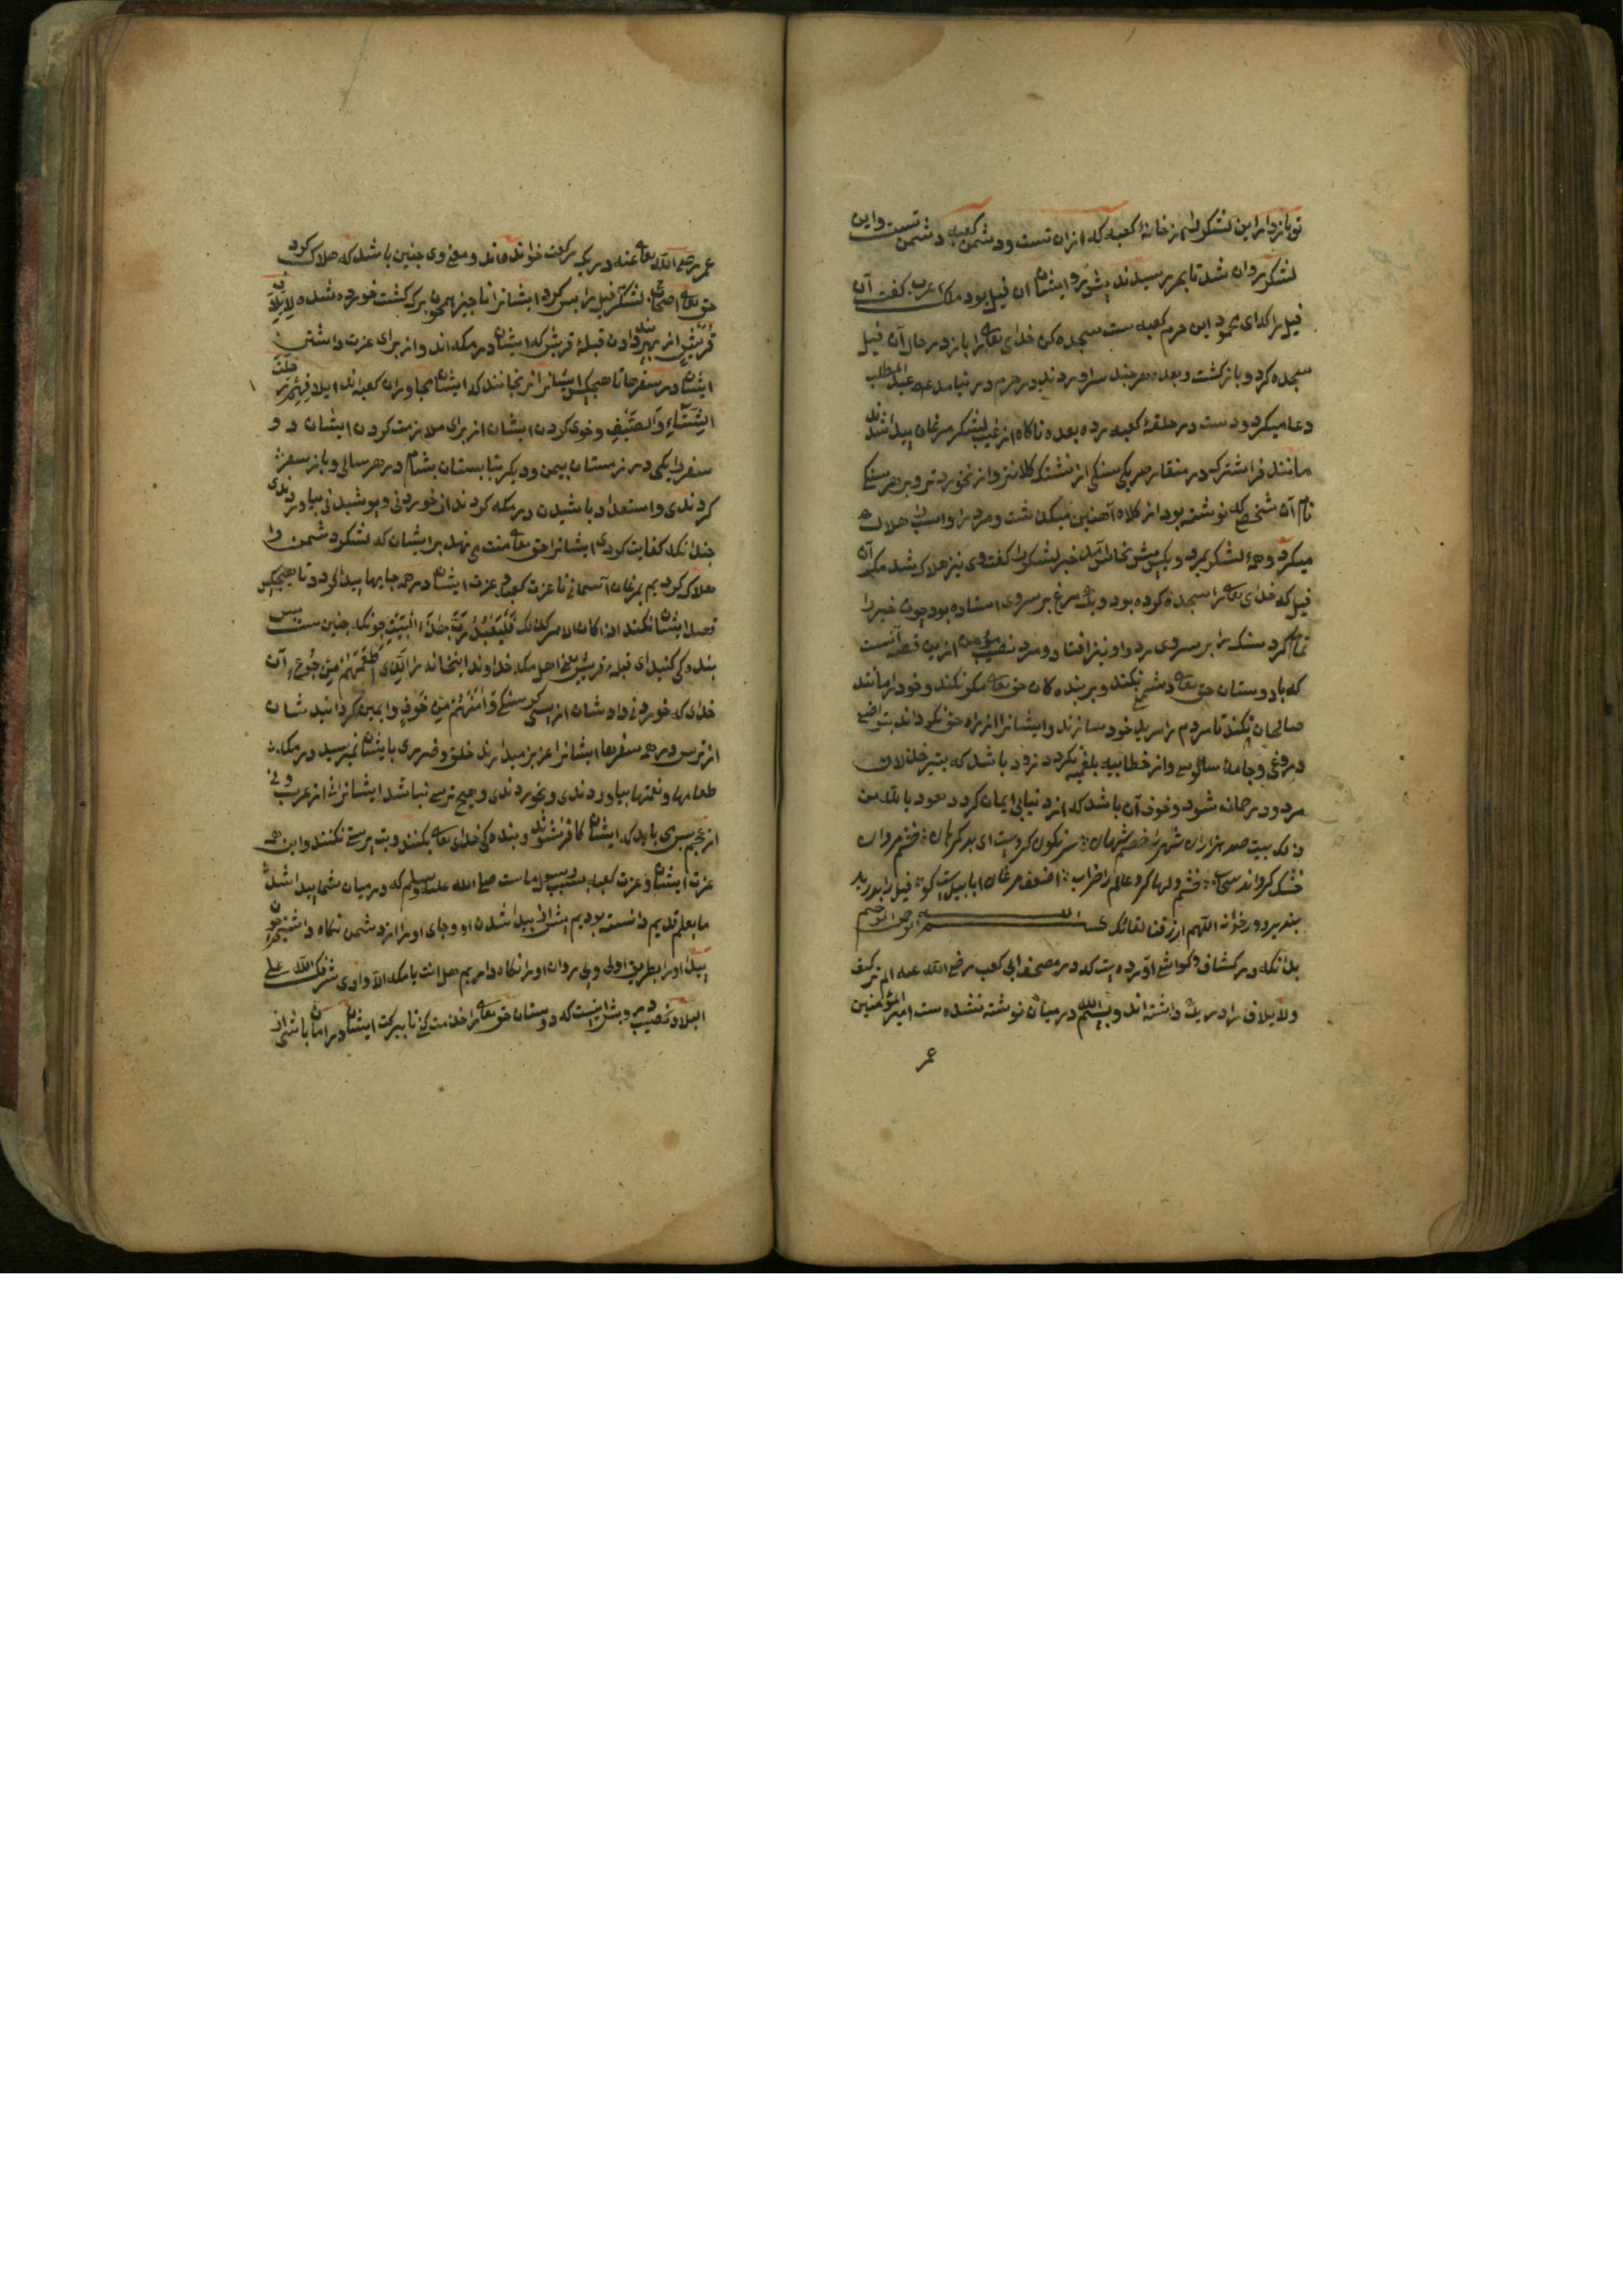 تو بازدار این لشکر را از خانهٔ کعبه که ازان تست و دشمن کعبه دشمن تست و این
لشکر روان شد تا بحرم رسیدند پیش رو ایشان آن فیل بود ملک عرب گفت آن
فیل را که ای محمود این حرم کعبه ست سجده کن خدای تعالی را باز در حال آن فیل
سجده کرد و باز گشت و بعده هر چند سرآوردند در حرم در نیامد عبد المطلب
دعا میکرد و دست در حلقهٔ کعبه زده بعده ناگاه از غیب لشکر مرغان پیدا شدند
مانند فراشترک در منقار هر یکی سنگی از نشتک کلانتر و از نخود خردتر و بر هر سنگی
نام آن شخص که نوشته بود از کلاه آهنین میگذشت و مرد را و اسپ را هلاک
میکرد و همهٔ لشکر بمرد و یکی پیش نجاشی آمد خبر لشکر را گفت وی نیز هلاک شد مگر آن
فیل که خدای تعالی را سجده کرده بود و یک مرغ بر سر وی استاده بود چون خبر را
تمام کرد سنگ را بر سر وی زد و او نیز افتاد و مرد نصیب مؤمن ازین قصه آنست
که با دوستان حق تعالی دشمنی نکند و بر بندهکان حق تعالی مکر نکند و خود را مانند
صالحان نکند تا مردم را مرید خود سازند و ایشانرا از راه حق نگرداند بتواضع
دروغی و جامهٔ سالوسی و از خطابیه بلغمیه نگردد زود باشد که بتیر خذلان
مردود در خانه شود و خوف آن باشد که از دنیا بی ایمان گردد نعوذ بالله من
ذلک بیت صد هزاران شهر را خشم شهان سرنگون کردست ای بد گمرهان خشم مردان
خشک گرداند سحاب خشم دلها کرد عالم را خراب اضعف مرغان ابابیلست کو فیل را بدرید
بنپذیرد و رخوانه اللهم ارزقنا لقائک بسم الله الرحمن الرحیم
بدانکه در کشاف و کواشی آورده است که در مصحف ابی کعب رضی الله عنه الم تر کیف
و لایلاف را در یک داشته اند و بسم الله در میان نوشته نشده ست امیر المؤمنین
عمر
عمر رضی الله تعالی عنه در یک رکعت خوانده ماند و معنی وی چنین باشد که هلاک کرد
حق تعالی اصحاب لشکر فیل را پس کرد ایشانرا ناچیز همچون برک کشت خورده شده لِاِیلَافِ
قُرَیْشٍ از بهر پند دادن قبیلهٔ قریش که ایشان در مکه اند و از برای عزت داشتن
ایشان در سفرها تا هیچکس ایشانرا نرنجانند که ایشان مجاوران کعبه اند اِیلَافِهِمْ رِحْلَةَ
الشِّتَاءِ وَالصَّیْفِ و خوی کردن ایشان از برای ملازمت کردن ایشان دو
سفر را یکی در زمستان بیمن و دیگر بتابستان بشام در هر سالی و باز سفر
کردندی و استعداد باشیدن در مکه کردند از خوردنی و پوشیدنی بیاوردندی
چندانکه کفایت کردی ایشانرا حق تعالی منت می نهد بر ایشان که لشکر دشمن را
هلاک کردیم بمرغان آسمانی تا عزت کعبه و عزت ایشان در همه جایها پیدا گردد تا هیچکس
قصد ایشان نکند اذا کان الامر کذلک فَلْیَعْبُدُوا رَبَّ هٰذَا الْبَیْتِ چونکه چنین ست پس
بندگی کنید ای قبیلهٔ قریش یعنی اهل مکه خداوند اینخانه را الَّذِی أَطْعَمَهُمْ مِنْ جُوعٍ آن
خدای که خوردنی داد شان از پس گرسنگی وَآمَنَهُمْ مِنْ خَوْفٍ و ایمن گردانید شان
از ترس در همه سفرها ایشانرا عزیز میدارند خلق و ضرری بایشان نمیرسید در مکه
طعامها و نعمتها بیاوردندی و بخوردندی و هیچ ترسی نباشد ایشانرا نه از عرب و نی
از عجم پس می باید که ایشان کافر نشوند و بندهگی خدای تعالی بکنند و بت پرستی نکنند و این همه
عزت ایشان و عزت کعبه بسبب رسول ماست صلی الله علیه وسلم که در میان شما پیدا شد
ما بعلم قدیم دانسته بودیم پیش از پیدا شدن او و جای او را از دشمن نگاه داشتیم چون
پیدا او را بطریق اولی و پی روان او را نگاه داریم صل انت یا مکه الا وادی شرفک الله علی
البلاد نصیب درویش اینست که دوستان حق تعالی را خدمت کنی تا ببرکت ایشان در امان باشی از